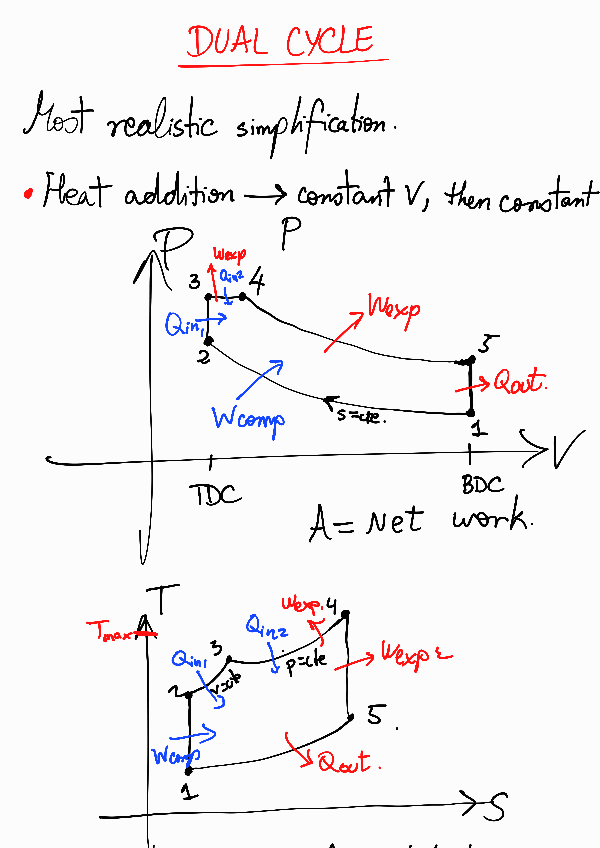 DUAL CYCLE
Most realistic simplification.
• Heat addition → constant V, then constant
P
P
Wexp
3
Qin2
4
Qin1
Wexp
2
5
Qout.
Wcomp
s=cte.
1
V
TDC
BDC
A = Net work.
T
Tmax
Wexp.
4
Qin2
3
Qin1
p=cte
Wexp2
2
v=cte
5.
Wcomp
Qout.
1
S